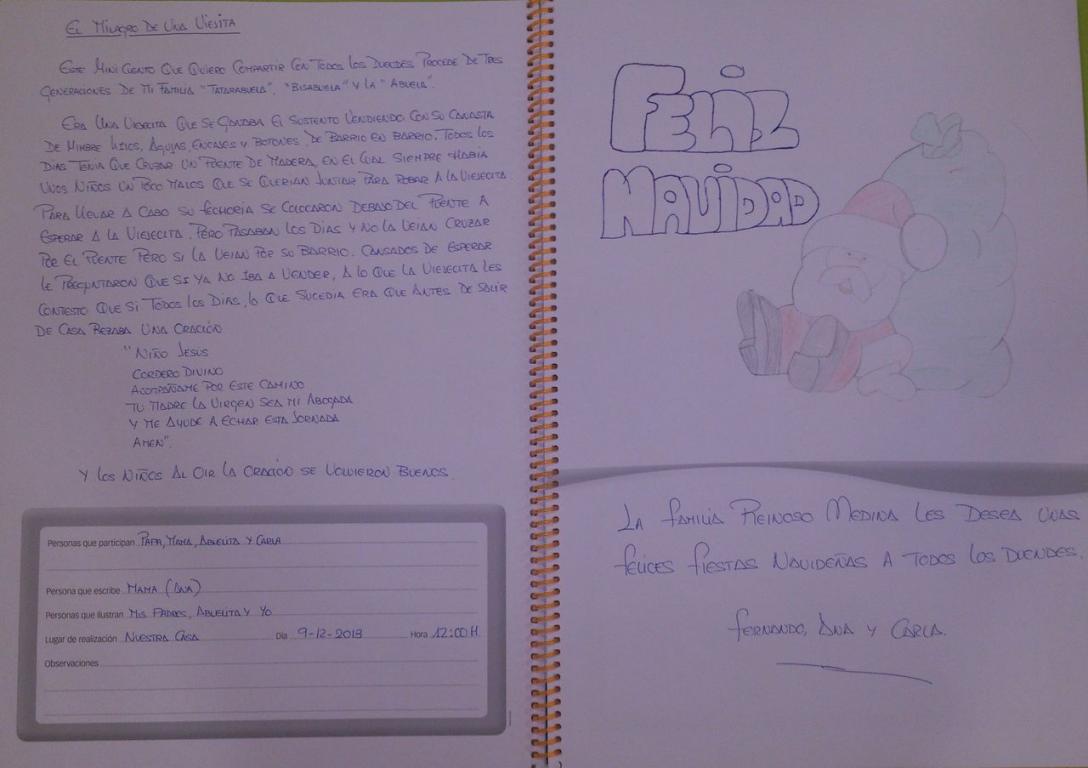 EL MILAGRO DE UNA VIEJITA
ESTE MINI CUENTO QUE QUIERO COMPARTIR CON TODOS LOS DUENDES PROCEDE DE TRES
GENERACIONES DE MI FAMILIA "TATARABUELA", "BISABUELA" Y LA "ABUELA".
ERA UNA VIEJECITA QUE SE GANABA EL SUSTENTO VENDIENDO CON SU CANASTA
DE MIMBRE HILOS, AGUJAS, ENCAJES Y BOTONES, DE BARRIO EN BARRIO. TODOS LOS
DIAS TENIA QUE CRUZAR UN PUENTE DE MADERA, EN EL CUAL SIEMPRE HABIA
UNOS NIÑOS UN POCO MALOS QUE SE QUERIAN JUNTAR PARA ROBAR A LA VIEJECITA
PARA LLEVAR A CABO SU FECHORIA SE COLOCARON DEBAJO DEL PUENTE A
ESPERAR A LA VIEJECITA. PERO PASABAN LOS DIAS Y NO LA VEIAN CRUZAR
POR EL PUENTE PERO SI LA VEIAN POR SU BARRIO. CANSADOS DE ESPERAR
LE PREGUNTARON QUE SI YA NO IBA A VENDER, A LO QUE LA VIEJECITA LES
CONTESTO QUE SI TODOS LOS DIAS, LO QUE SUCEDIA ERA QUE ANTES DE SALIR
DE CASA REZABA UNA ORACIÓ
"NIÑO JESUS
CORDERO DIVINO
ACOMPAÑAME POR ESTE CAMINO
TU MADRE LA VIRGEN SEA MI ABOGADA
Y ME AYUDE A ECHAR ESTA JORNADA
AMEN".
Y LOS NIÑOS AL OIR LA ORACIÓ SE VOLVIERON BUENOS.
Personas que participan PAPA, MAMA, ABUELITA Y CARLA
Persona que escribe MAMA (ANA)
Personas que ilustran MIS PADRES, ABUELITA Y YO
Lugar de realización NUESTRA CASA Día 9-12-2013 Hora 12:00 H
Observaciones
FELIZ
NAVIDAD
LA FAMILIA REINOSO MEDINA LES DESEA UNAS
FELICES FIESTAS NAVIDEÑAS A TODOS LOS DUENDES.
FERNANDO, ANA Y CARLA.